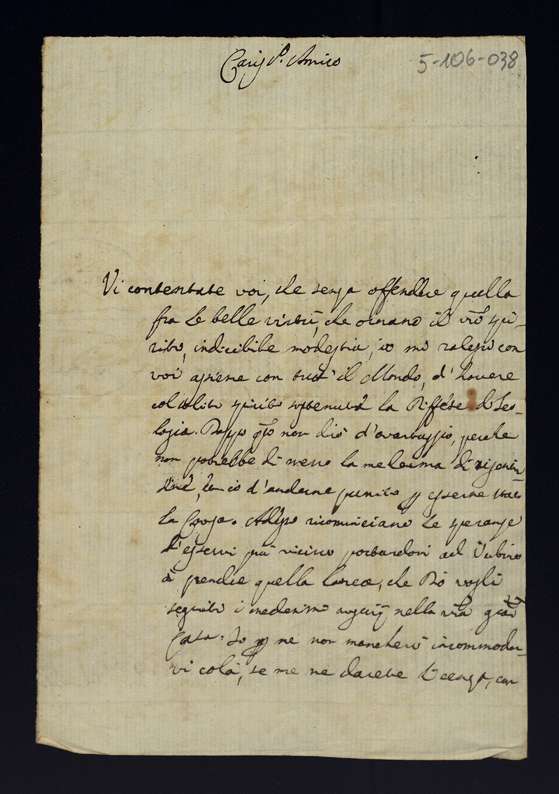 Caris.o Amico
5-106-038
Vi contentate voi, che senza offendere quella
fra le belle virtù, che ornano il vro spi-
rito, indicibile modestia, io mi ralegri con
voi assieme con tutt' il Mondo, d' havere
col solito spirito sostenuta la Difese di Teo-
logia. Doppo qto non dio d'avantaggio, perche
non potrebbe di meno la medesima di
d'anderne punito p esserne stato
la Adesso ricominciano le speranze
d'esservi più vicino portandovi ad Urbino
à prendre quella laurea, che Dio vogli
seguito i medesimi augurij nella vra
Casa. Io p me non mancherò incommodar-
vi colà, se me ne darete licenza, con